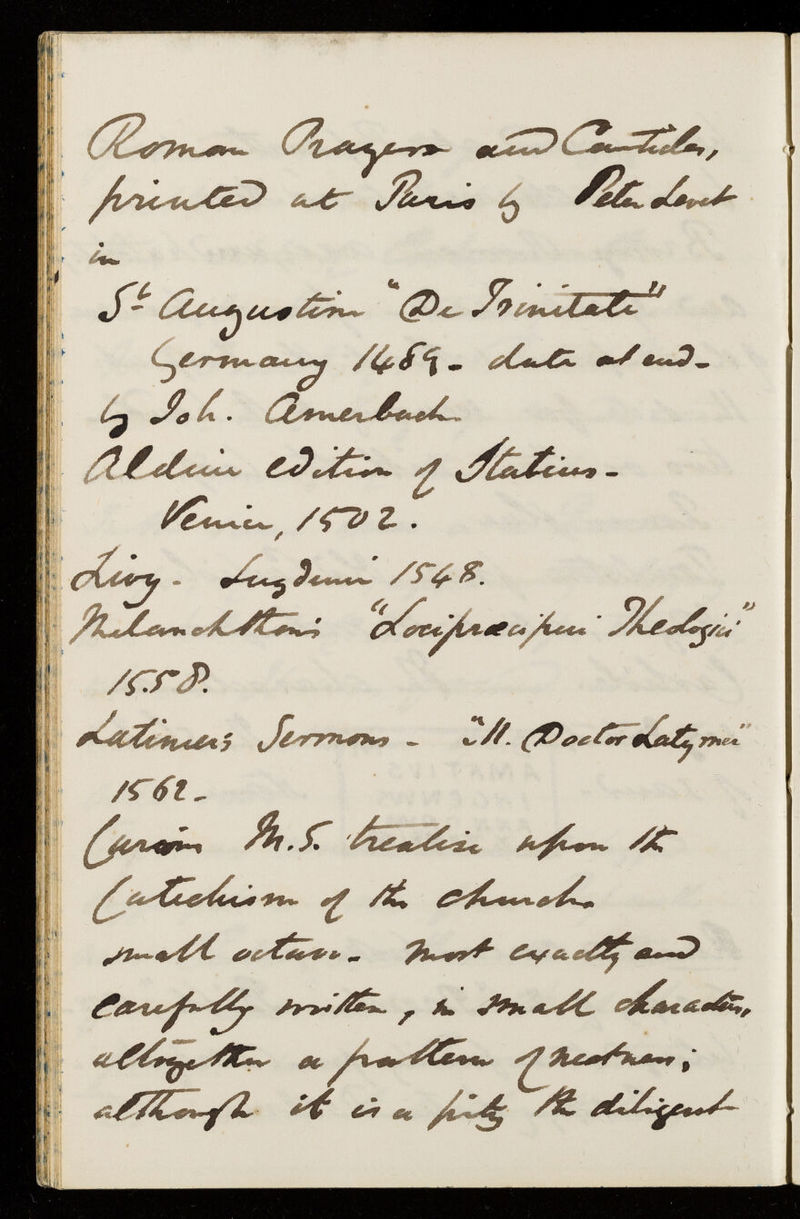 Roman Prayers and Canticles,
printed at Paris by Peter Levet
in
St Augustine "De Trinitate"
Germany 1489 - date at end -
by Joh. Amerbach
Aldine edition of Statius -
Venice, 1502.
Livy - Lugduni 1548.
Melanchthon's "Loci præcipui Theologici"
1558.
Latimer's Sermons - "M. Doctor Latymer"
1562 -
M.S. treatise upon the
Catechism of the church
small octavo - most exactly and
carefully written, in small character,
altogether a pattern of neatness;
although it is a pity the diligent